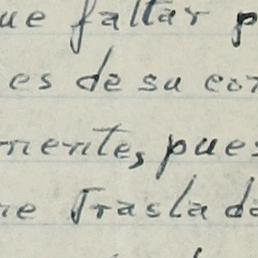 ue faltar p
es de su cor
mente, pues
ne Traslada